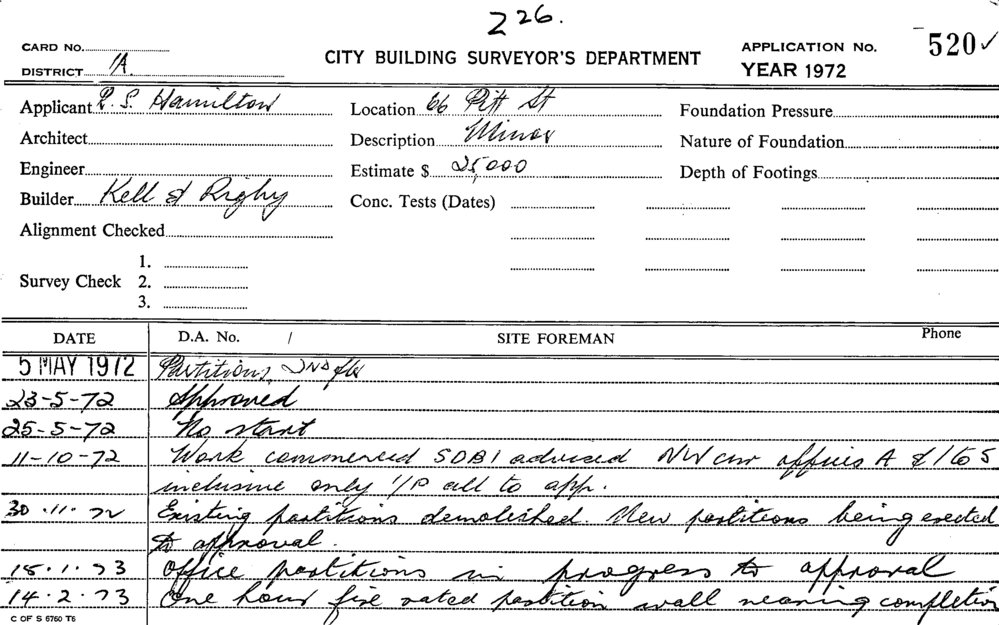 226.
CARD NO.
CITY BUILDING SURVEYOR'S DEPARTMENT
APPLICATION No. 520 ✓
DISTRICT 1A.
YEAR 1972
Applicant R. S. Hamilton
Location 66 Pitt St
Foundation Pressure
Architect
Description Minor
Nature of Foundation
Engineer
Estimate $ 25,000
Depth of Footings
Builder Kell & Rigby
Conc. Tests (Dates)
Alignment Checked
1.
Survey Check 2.
3.
DATE D.A. No. / SITE FOREMAN Phone
5 MAY 1972 Partitions, 2ND flr
23-5-72 Approved
25-5-72 No start
11-10-72 Work commenced SDBI advised NW cnr offices A & 1 to 5
inclusive only I/P all to app.
30.11.72 Existing partitions demolished. New partitions being erected
to approval.
15.1.73 Office partitions in progress to approval
14.2.73 One hour fire rated partition wall nearing completion
C OF S 6760 T6